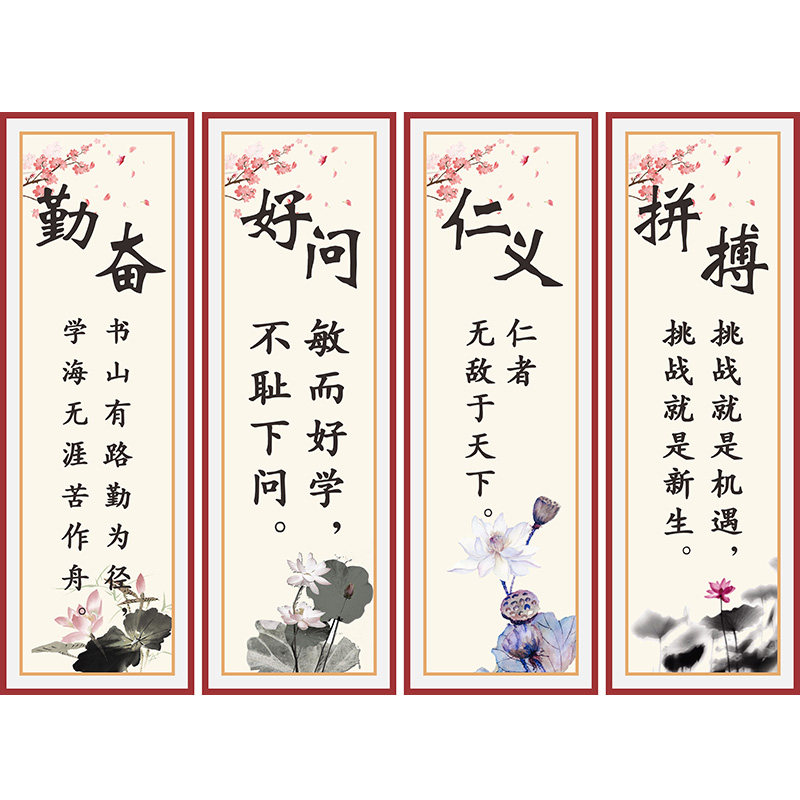 勤奋
书山有路勤为径，
学海无涯苦作舟。
好问
敏而好学，
不耻下问。
仁义
仁者
无敌于天下。
拼搏
挑战就是机遇，
挑战就是新生。